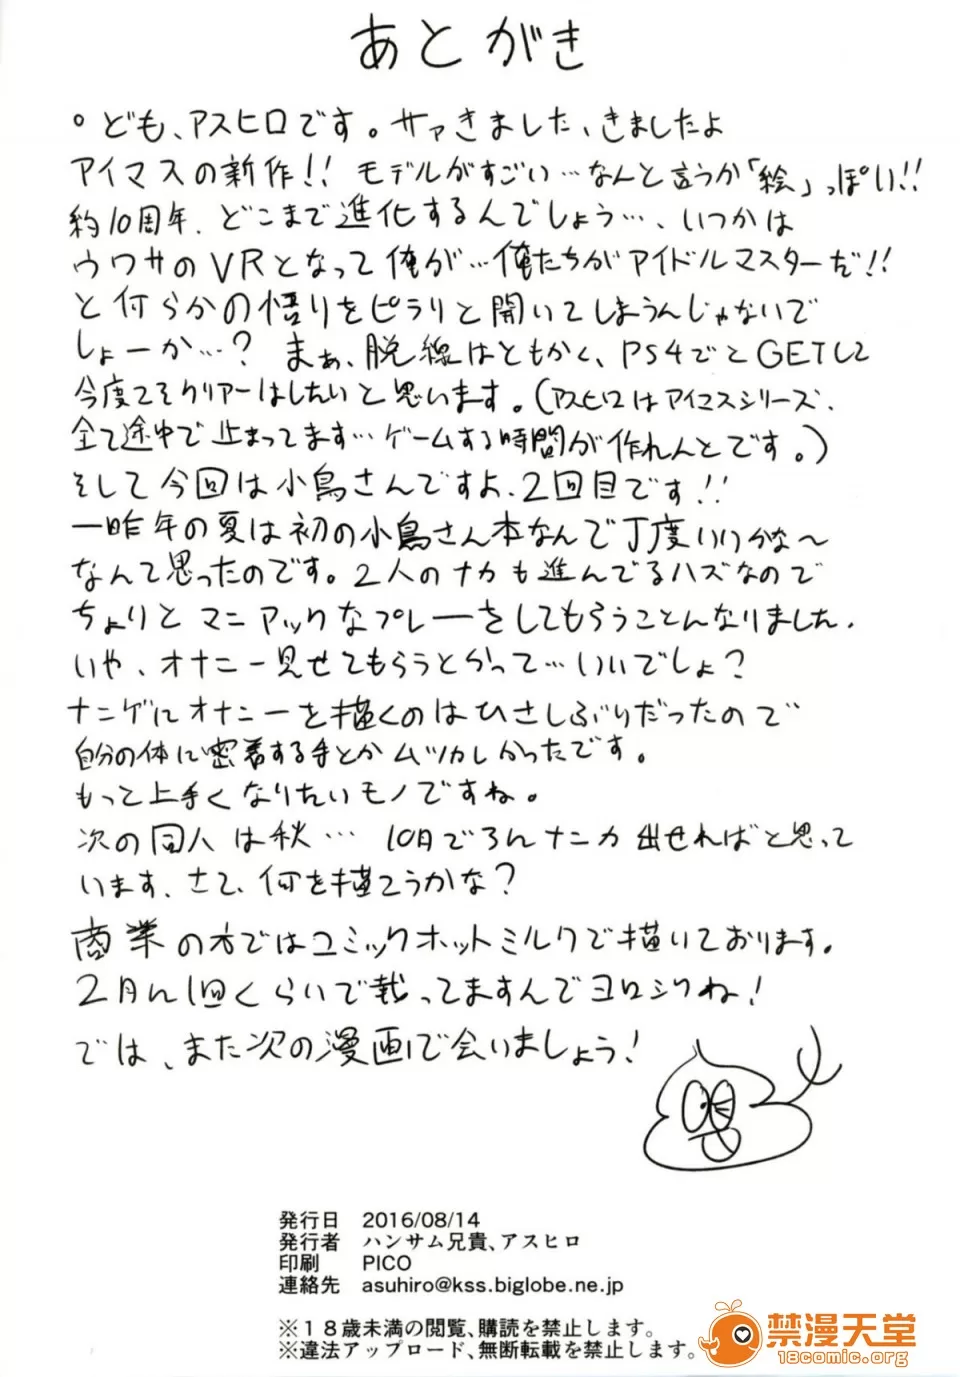 あとがき
。ども、アスヒロです。サァきました、きましたよ
アイマスの新作!! モデルがすごい…なんと言うか「絵」っぽい!!
約10周年、どこまで進化するんでしょう…、いつかは
ウワサのVRとなって俺が…俺たちがアイドルマスターだ!!
と何らかの悟りをピラリと開いてしまうんじゃないで
しょーか…? まぁ、脱線はともかく、PS4ごとGETして
今度こそクリアーはしたいと思います。(アスヒロはアイマスシリーズ、
全て途中で止まってます…ゲームする時間が作れんとです。)
そして今回は小鳥さんですよ、2回目です!!
一昨年の夏は初の小鳥さん本なんで丁度いいかな〜
なんて思ったのです。2人のナカも進んでるハズなので
ちょりとマニアックなプレーをしてもらうことんなりました、
いや、オナニー見せてもらうとかって…いいでしょ?
ナニゲにオナニーを描くのはひさしぶりだったので
自分の体に密着する手とかムツカしかったです。
もっと上手くなりたいモノですね。
次の同人は秋… 10月ごろんナニカ出せればと思って
います、さて、何を描こうかな?
商業の方ではコミックホットミルクで描いております。
2月ん1回くらいで載ってますんでヨロシクね!
では、また次の漫画で会いましょう!
発行日 2016/08/14
発行者 ハンサム兄貴、アスヒロ
印刷 PICO
連絡先 asuhiro@kss.biglobe.ne.jp
※18歳未満の閲覧、購読を禁止します。
※違法アップロード、無断転載を禁止します。
禁漫天堂
18comic.org